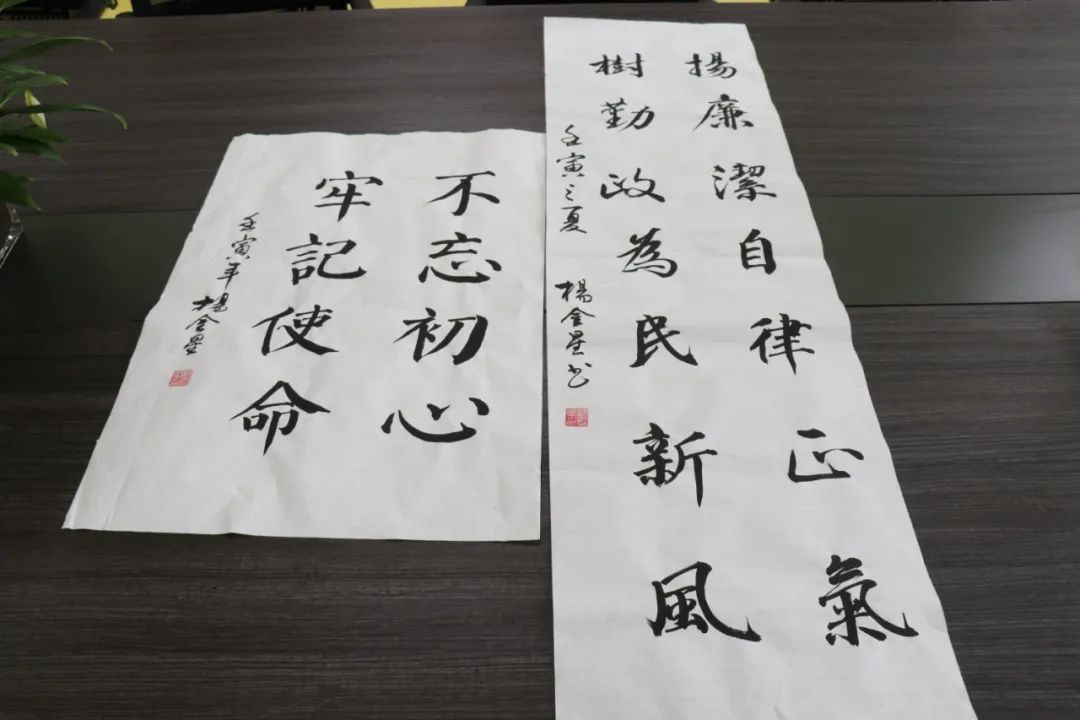 揚廉潔自律正氣
樹勤政為民新風
壬寅之夏 楊金星书
不忘初心
牢記使命
壬寅年楊金星